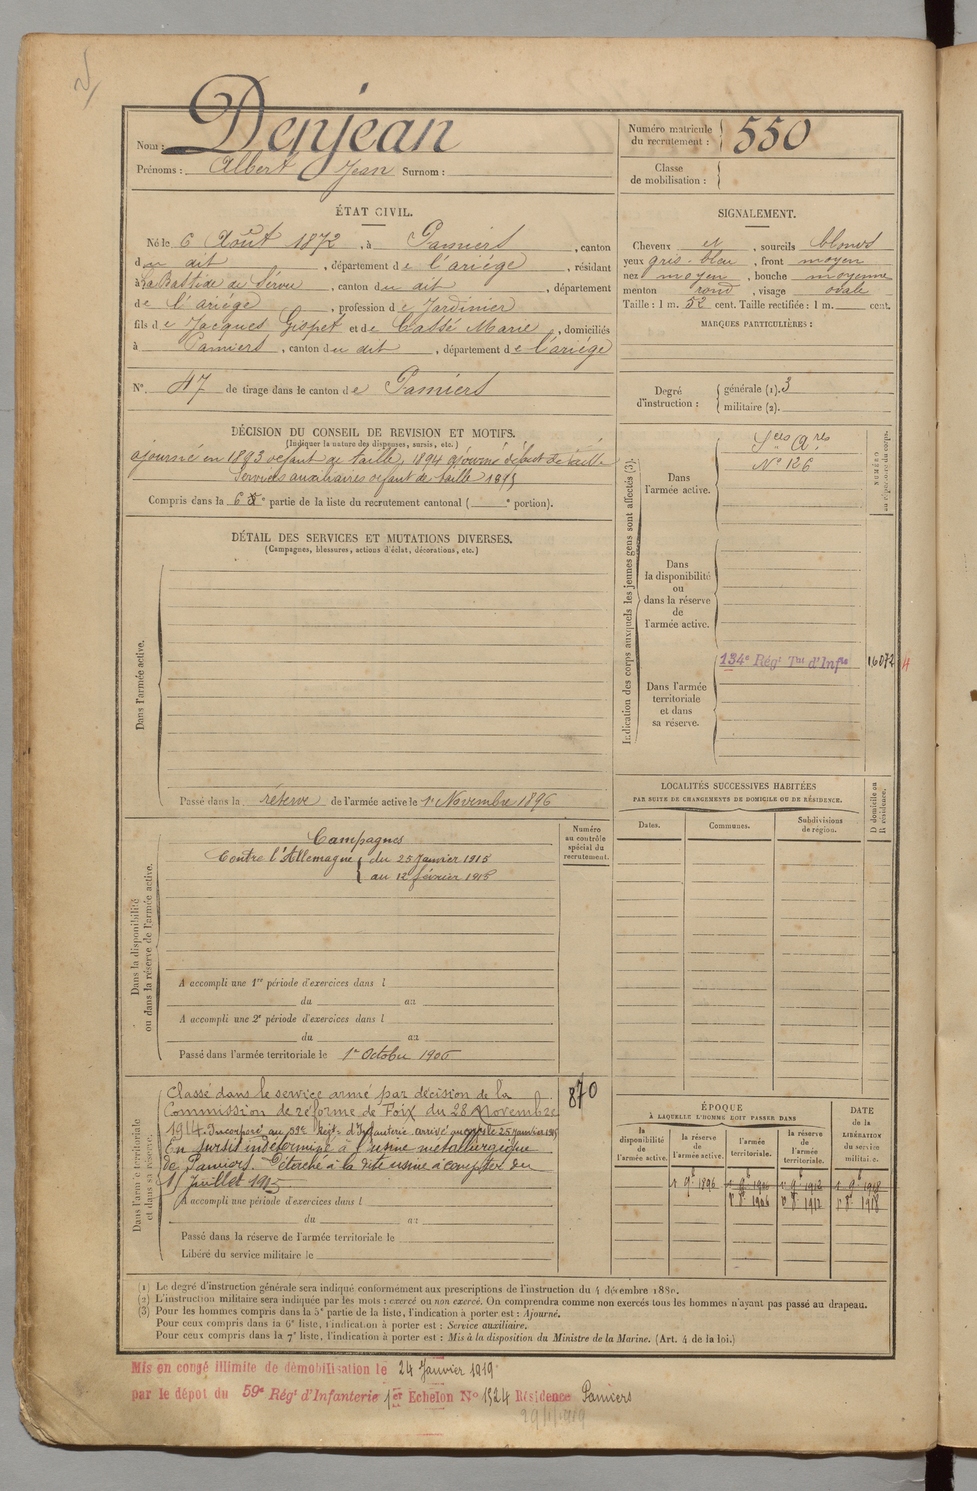 Nom : Denjean
Prénoms : Albert Jean Surnom :
Numéro matricule du recrutement : 550
Classe de mobilisation :
ÉTAT CIVIL.
Né le 6 Août 1872, à Pamiers, canton
du dit, département de l'ariége, résidant
à La Bastide de Sérou, canton du dit, département
de l'ariége, profession de Jardinier
fils de Jacques Gispet et de Cassé Marie, domiciliés
à Pamiers, canton du dit, département de l'ariége
N°. 47 de tirage dans le canton de Pamiers
SIGNALEMENT.
Cheveux et, sourcils blonds
yeux gris-bleu, front moyen
nez moyen, bouche moyenne
menton rond, visage ovale
Taille : 1 m. 52 cent. Taille rectifiée : 1 m. cent.
MARQUES PARTICULIÈRES :
Degré d'instruction : générale (1). 3
militaire (2).
DÉCISION DU CONSEIL DE REVISION ET MOTIFS.
(Indiquer la nature des dispenses, sursis, etc.)
ajourné en 1893 défaut de taille, 1894 ajourné défaut de taille
Services auxiliaires défaut de taille 1895
Compris dans la 6e partie de la liste du recrutement cantonal ( e portion).
DÉTAIL DES SERVICES ET MUTATIONS DIVERSES.
(Campagnes, blessures, actions d'éclat, décorations, etc.)
Dans l'armée active.
Passé dans la réserve de l'armée active le 1er Novembre 1896
Indication des corps auxquels les jeunes gens sont affectés (3).
NUMÉRO au répertoire du corps.
Dans l'armée active.
Sces Ares
N° 126
Dans la disponibilité ou dans la réserve de l'armée active.
Dans l'armée territoriale et dans sa réserve.
134e Régt Tal d'Infie
16072
H
LOCALITÉS SUCCESSIVES HABITÉES
PAR SUITE DE CHANGEMENTS DE DOMICILE OU DE RÉSIDENCE.
Dates.
Communes.
Subdivisions de région.
D domicile ou R résidence.
Dans la disponibilité ou dans la réserve de l'armée active.
Numéro au contrôle spécial du recrutement.
Campagnes
Contre l'Allemagne { du 25 Janvier 1915
au 12 février 1915
A accompli une 1re période d'exercices dans l
du au
A accompli une 2e période d'exercices dans l
du au
Passé dans l'armée territoriale le 1er Octobre 1906
Dans l'armée territoriale et dans sa réserve.
870
Classé dans le service armé par décision de la
Commission de réforme de Foix du 28 Novembre
1914. Incorporé au 59e Régt d'Infanterie arrivé au corps le 25 Janvier 1915
En sursis indéterminé à l'usine métallurgique
de Pamiers. Détaché à la dite usine à compter du
15 Juillet 1915
A accompli une période d'exercices dans l
du au
Passé dans la réserve de l'armée territoriale le
Libéré du service militaire le
ÉPOQUE
À LAQUELLE L'HOMME DOIT PASSER DANS
la disponibilité de l'armée active.
la réserve de l'armée active.
l'armée territoriale.
la réserve de l'armée territoriale.
DATE de la LIBÉRATION du service militaire.
1er 9bre 1896 1er 9bre 1906 1er 9bre 1912 1er 9bre 1918
1er 8bre 1906 1er 8bre 1912 1er 8bre 1918
(1) Le degré d'instruction générale sera indiqué conformément aux prescriptions de l'instruction du 4 décembre 1889.
(2) L'instruction militaire sera indiquée par les mots : exercé ou non exercé. On comprendra comme non exercés tous les hommes n'ayant pas passé au drapeau.
(3) Pour les hommes compris dans la 5e partie de la liste, l'indication à porter est : Ajourné.
Pour ceux compris dans la 6e liste, l'indication à porter est : Service auxiliaire.
Pour ceux compris dans la 7e liste, l'indication à porter est : Mis à la disposition du Ministre de la Marine. (Art. 4 de la loi.)
Mis en congé illimité de démobilisation le 24 Janvier 1919
par le dépôt du 59e Régt d'Infanterie 1er Echelon N° 1524 Résidence Pamiers